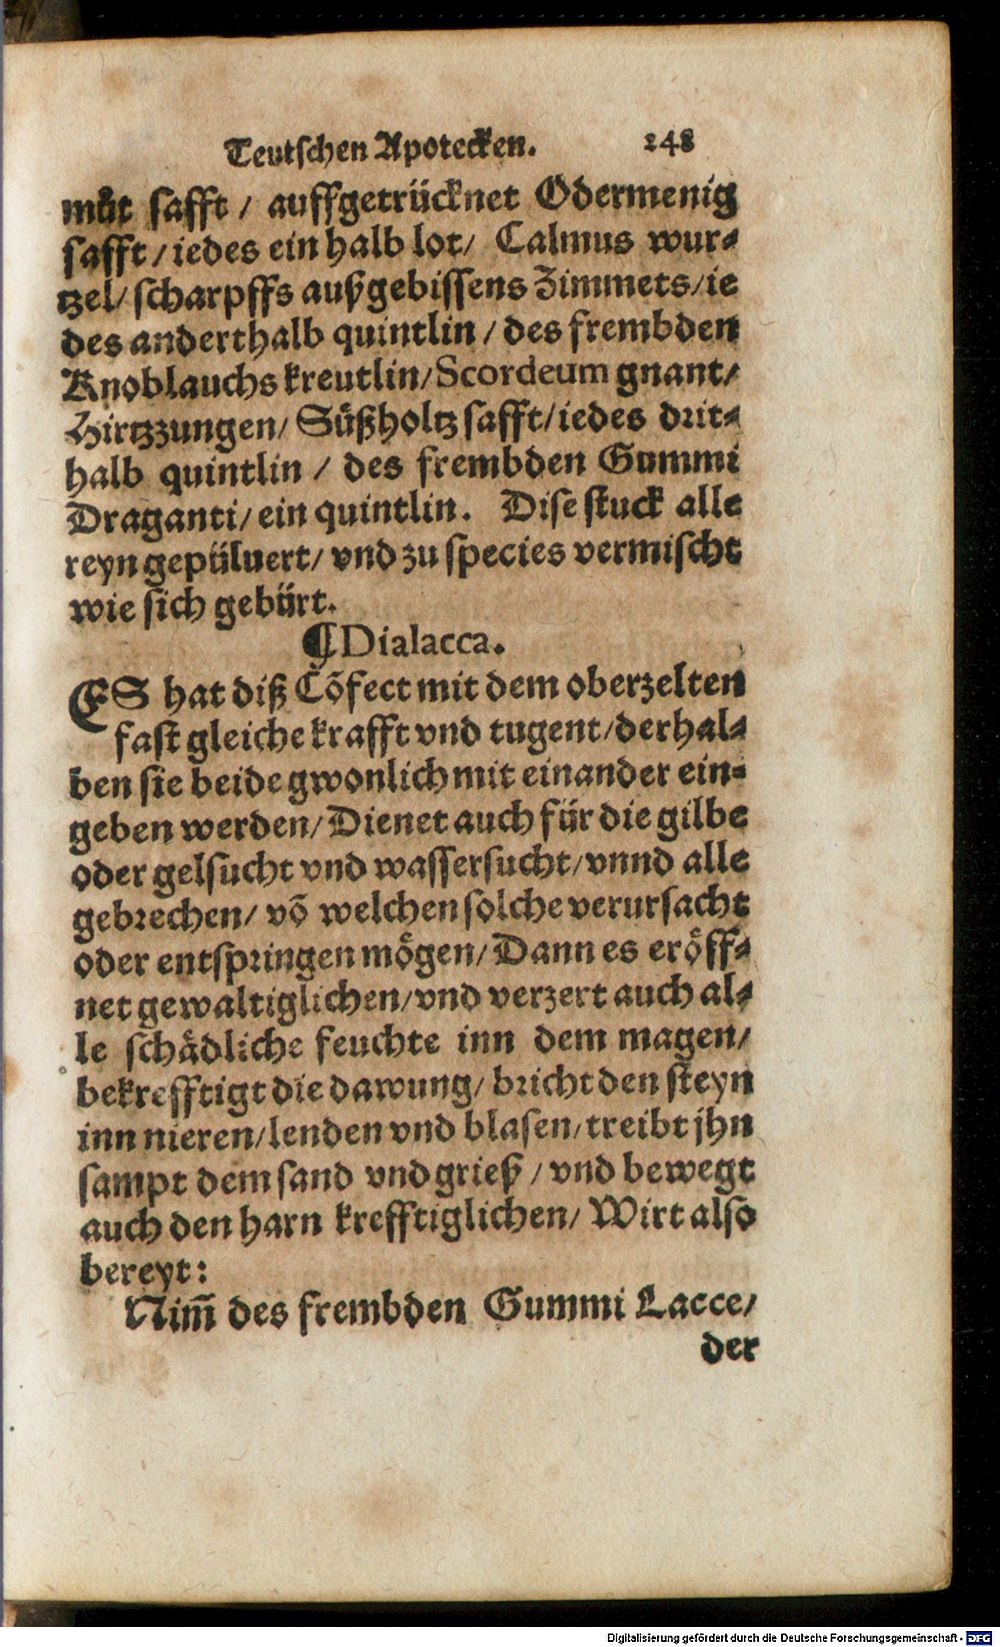 Teutschen Apotecken. 248
můt safft / auffgetrücknet Odermenig
safft / iedes ein halb lot / Calmus wur⸗
tzel / scharpffs außgebissens Zimmets / ie
des anderthalb quintlin / des frembden
Knoblauchs kreutlin / Scordeum gnant /
Hirtzzungen / Süßholtz safft / iedes drit⸗
halb quintlin / des frembden Gummi
Draganti / ein quintlin. Dise stuck alle
reyn gepüluert / vnd zu species vermischt
wie sich gebürt.
¶ Dialacca.
ES hat diß Cõfect mit dem oberzelten
fast gleiche krafft vnd tugent / derhal⸗
ben sie beide gwonlich mit einander ein⸗
geben werden / Dienet auch für die gilbe
oder gelsucht vnd wassersucht / vnnd alle
gebrechen / võ welchen solche verursacht
oder entspringen mögen / Dann es eröff⸗
net gewaltiglichen / vnd verzert auch al⸗
le schädliche feuchte inn dem magen /
bekrefftigt die dawung / bricht den steyn
inn nieren / lenden vnd blasen / treibt jhn
sampt dem sand vnd grieß / vnd bewegt
auch den harn krefftiglichen / Wirt also
bereyt:
Nim̃ des frembden Gummi Lacce /
der
Digitalisierung gefördert durch die Deutsche Forschungsgemeinschaft - DFG